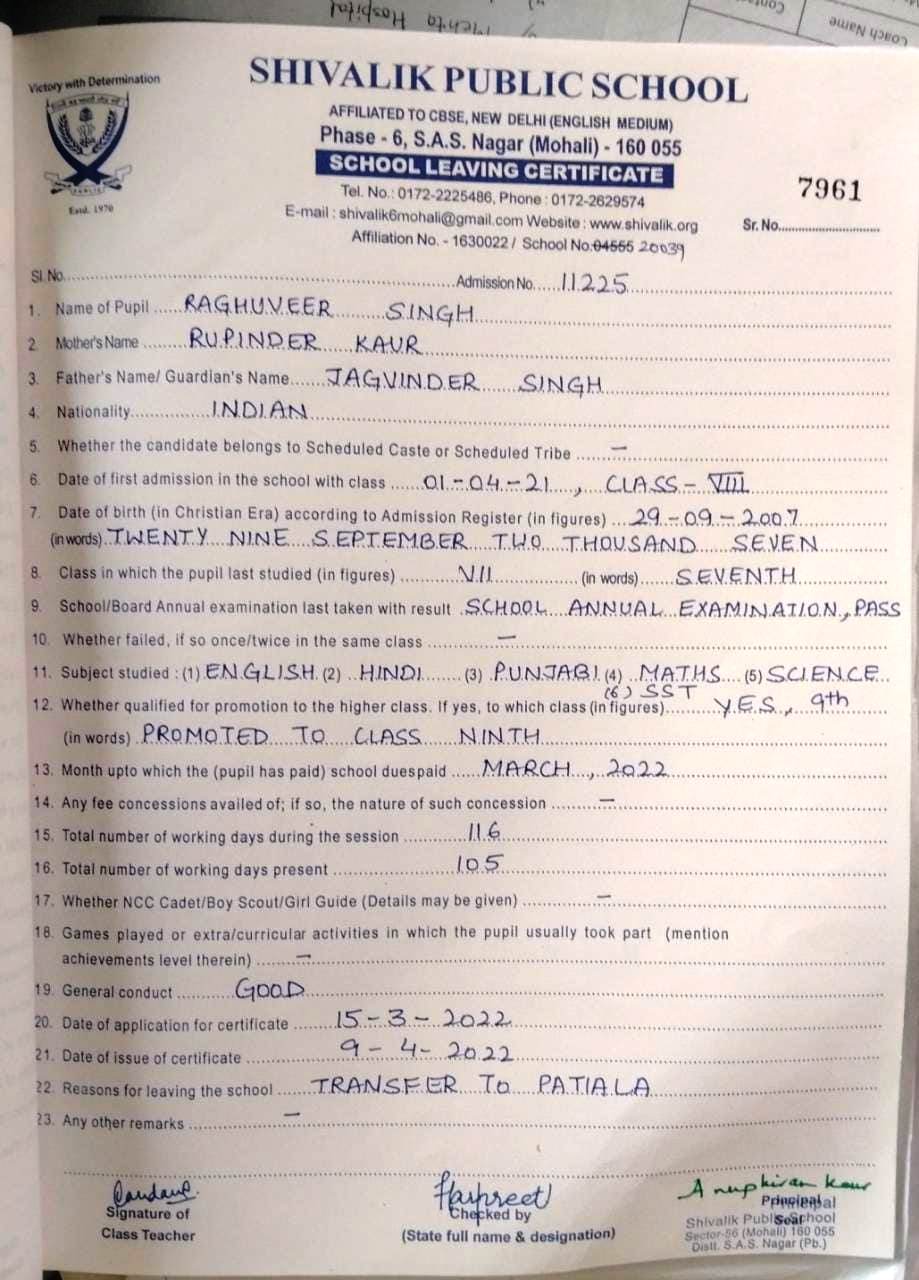 Mehta Hospital
Contac
Coach Name
Victory with Determination
Estd. 1970
SHIVALIK PUBLIC SCHOOL
AFFILIATED TO CBSE, NEW DELHI (ENGLISH MEDIUM)
Phase - 6, S.A.S. Nagar (Mohali) - 160 055
SCHOOL LEAVING CERTIFICATE
Tel. No.: 0172-2225486, Phone : 0172-2629574
E-mail : shivalik6mohali@gmail.com Website : www.shivalik.org
Affiliation No. - 1630022 / School No.04555 20039
7961
Sr. No..............................
Sl. No.......................................Admission No......11225
1. Name of Pupil ......RAGHUVEER SINGH
2. Mother's Name ......RUPINDER KAUR
3. Father's Name/ Guardian's Name......JAGVINDER SINGH
4. Nationality......INDIAN
5. Whether the candidate belongs to Scheduled Caste or Scheduled Tribe ...... –
6. Date of first admission in the school with class ......01-04-21, CLASS - VIII
7. Date of birth (in Christian Era) according to Admission Register (in figures) ...29-09-2007
(in words) TWENTY NINE SEPTEMBER TWO THOUSAND SEVEN
8. Class in which the pupil last studied (in figures) ......VII...... (in words)......SEVENTH
9. School/Board Annual examination last taken with result SCHOOL ANNUAL EXAMINATION, PASS
10. Whether failed, if so once/twice in the same class ...... –
11. Subject studied : (1) ENGLISH (2) HINDI (3) PUNJABI (4) MATHS (5) SCIENCE
(6) SST
12. Whether qualified for promotion to the higher class. If yes, to which class (in figures)......YES, 9th
(in words) PROMOTED TO CLASS NINTH
13. Month upto which the (pupil has paid) school duespaid ......MARCH, 2022
14. Any fee concessions availed of; if so, the nature of such concession ...... –
15. Total number of working days during the session ......116
16. Total number of working days present ......105
17. Whether NCC Cadet/Boy Scout/Girl Guide (Details may be given) ...... –
18. Games played or extra/curricular activities in which the pupil usually took part (mention
achievements level therein) ...... –
19. General conduct ......GOOD
20. Date of application for certificate ......15-3-2022
21. Date of issue of certificate ......9-4-2022
22. Reasons for leaving the school ......TRANSFER TO PATIALA
23. Any other remarks ...... –
Signature of
Class Teacher
Harpreet
Checked by
(State full name & designation)
Anupkiran Kaur
Principal
Principal
Seal
Shivalik Public School
Sector-56 (Mohali) 160 055
Distt. S.A.S. Nagar (Pb.)